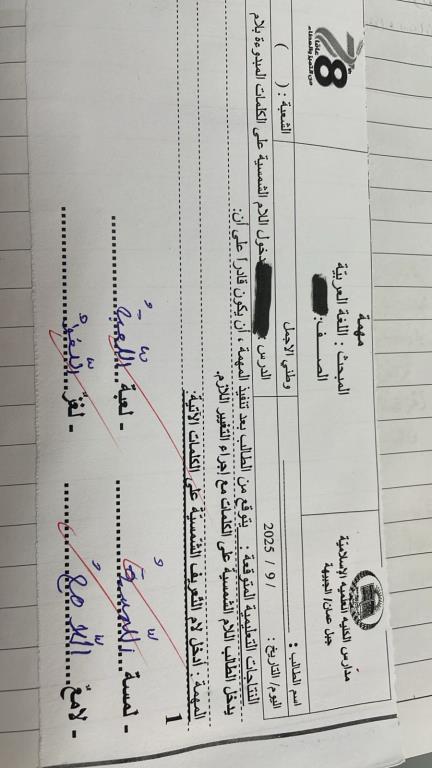 مدارس الكلية العلمية الإسلامية
جبل عمان/ الجبيهة
مهمة
المبحث : اللغة العربية
الصـــف:
78
عامًا
من التميز والعطاء
اسم الطالب :
وطني الاجمل
الشعبة : ( )
اليوم/ التاريخ : / 9 / 2025
الدرس : دخول اللام الشمسية على الكلمات المبدوءة بلام
النتاجات التعليمية المتوقعة : يتوقع من الطالب بعد تنفيذ المهمة ، أن يكون قادرا على أن:
يدخل الطالب اللام الشمسية على الكلمات مع إجراء التغيير اللازم.
المهمة : أدخل لام التعريف الشمسية على الكلمات الآتية:
1
- لمسة ... اللّمسةُ ... - لعبة ... اللّعبةُ ...
- لامعٌ ... اللّامعُ ... - لغزٌ ... اللّغزُ ...